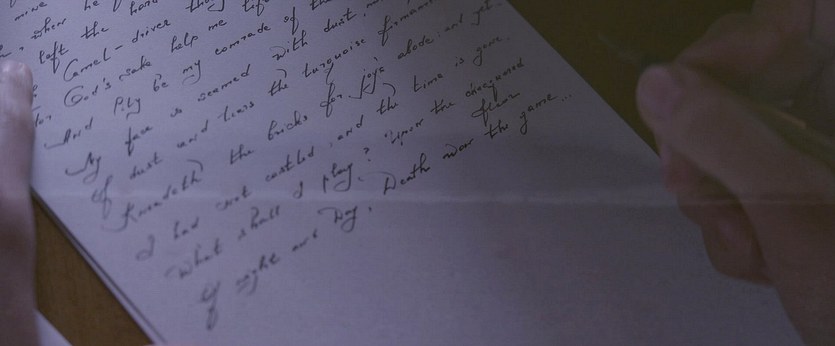 mine
when he f
left the hard
Camel-driver thou
For God's sake help me lif
And Pity be my comrade of th
My face is seamed with dust, m
Of dust and tears the turquoise firmament
Kneadeth the bricks for joy's abode; and yet
I had not castled, and the time is gone.
What shall I play? Upon the chequered floor
Of night and Day, Death won the game...